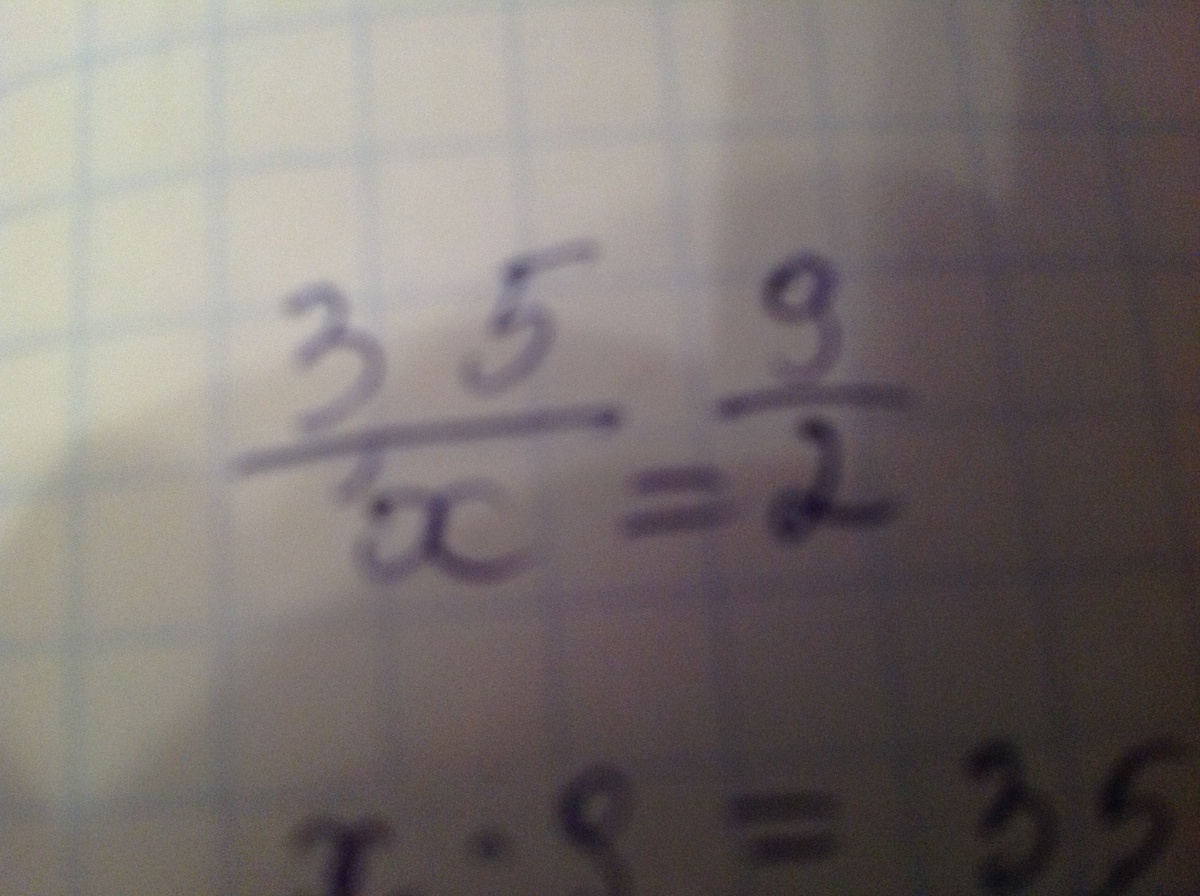 35/x = 9/2
x · 9 = 35